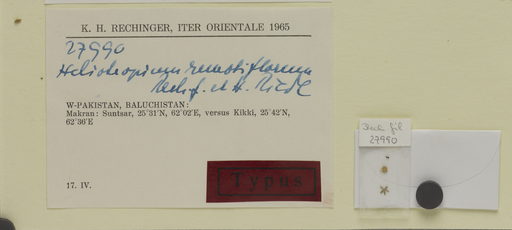 K. H. RECHINGER, ITER ORIENTALE 1965
27990
Heliotropium remotiflorum
Rech. f. et H. Riedl
W-PAKISTAN, BALUCHISTAN:
Makran: Suntsar, 25°31'N, 62°02'E, versus Kikki, 25°42'N,
62°36'E
17. IV.
Typus
fil
27990